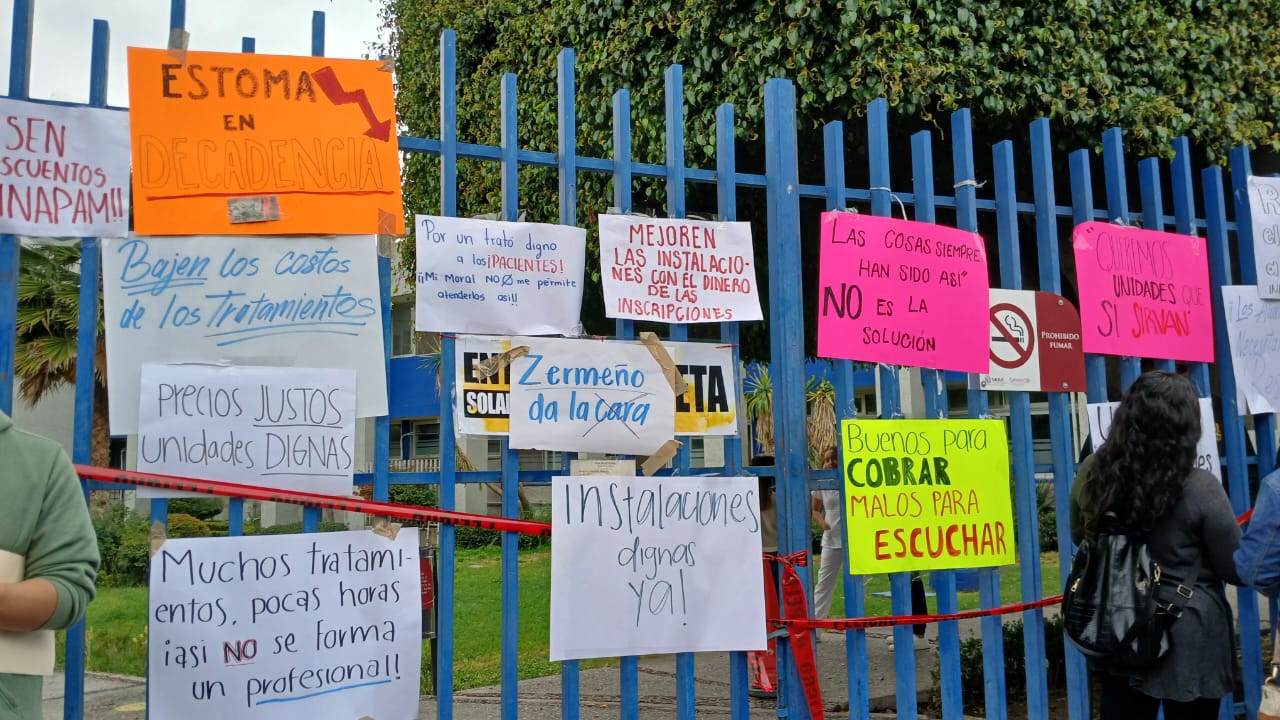 SEN
SCUENTOS
INAPAM!!
ESTOMA
EN
DECADENCIA
Bajen los costos
de los Tratamientos
PRECIOS JUSTOS
unidades DIGNAS
Muchos tratami-
entos, pocas horas
¡así NO se forma
un profesional!
Por un trato digno
a los ¡PACIENTES!
¡¡Mi moral NO me permite
atenderlos así!!
MEJOREN
LAS INSTALACIO-
NES CON EL DINERO
DE LAS
INSCRIPCIONES
ENT
SOLA
ETA
Zermeño
da la cara
Instalaciones
dignas
ya!
LAS COSAS SIEMPRE
HAN SIDO ASI"
NO ES LA
SOLUCIÓN
PROHIBIDO
FUMAR
Buenos para
COBRAR
MALOS PARA
ESCUCHAR
"QUEREMOS
UNIDADES QUE
SI SIRVAN"